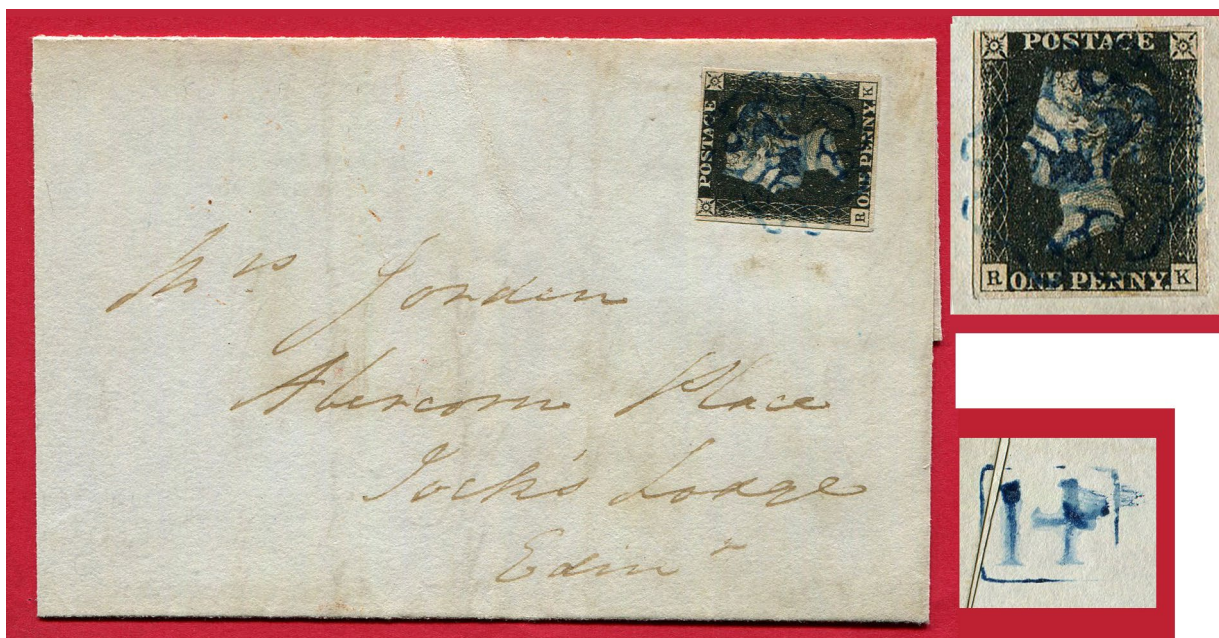 POSTAGE
ONE PENNY
R K
Mrs Jorden
Abercorn Place
Jock's Lodge
Edinr
POSTAGE
R ONE PENNY. K
14